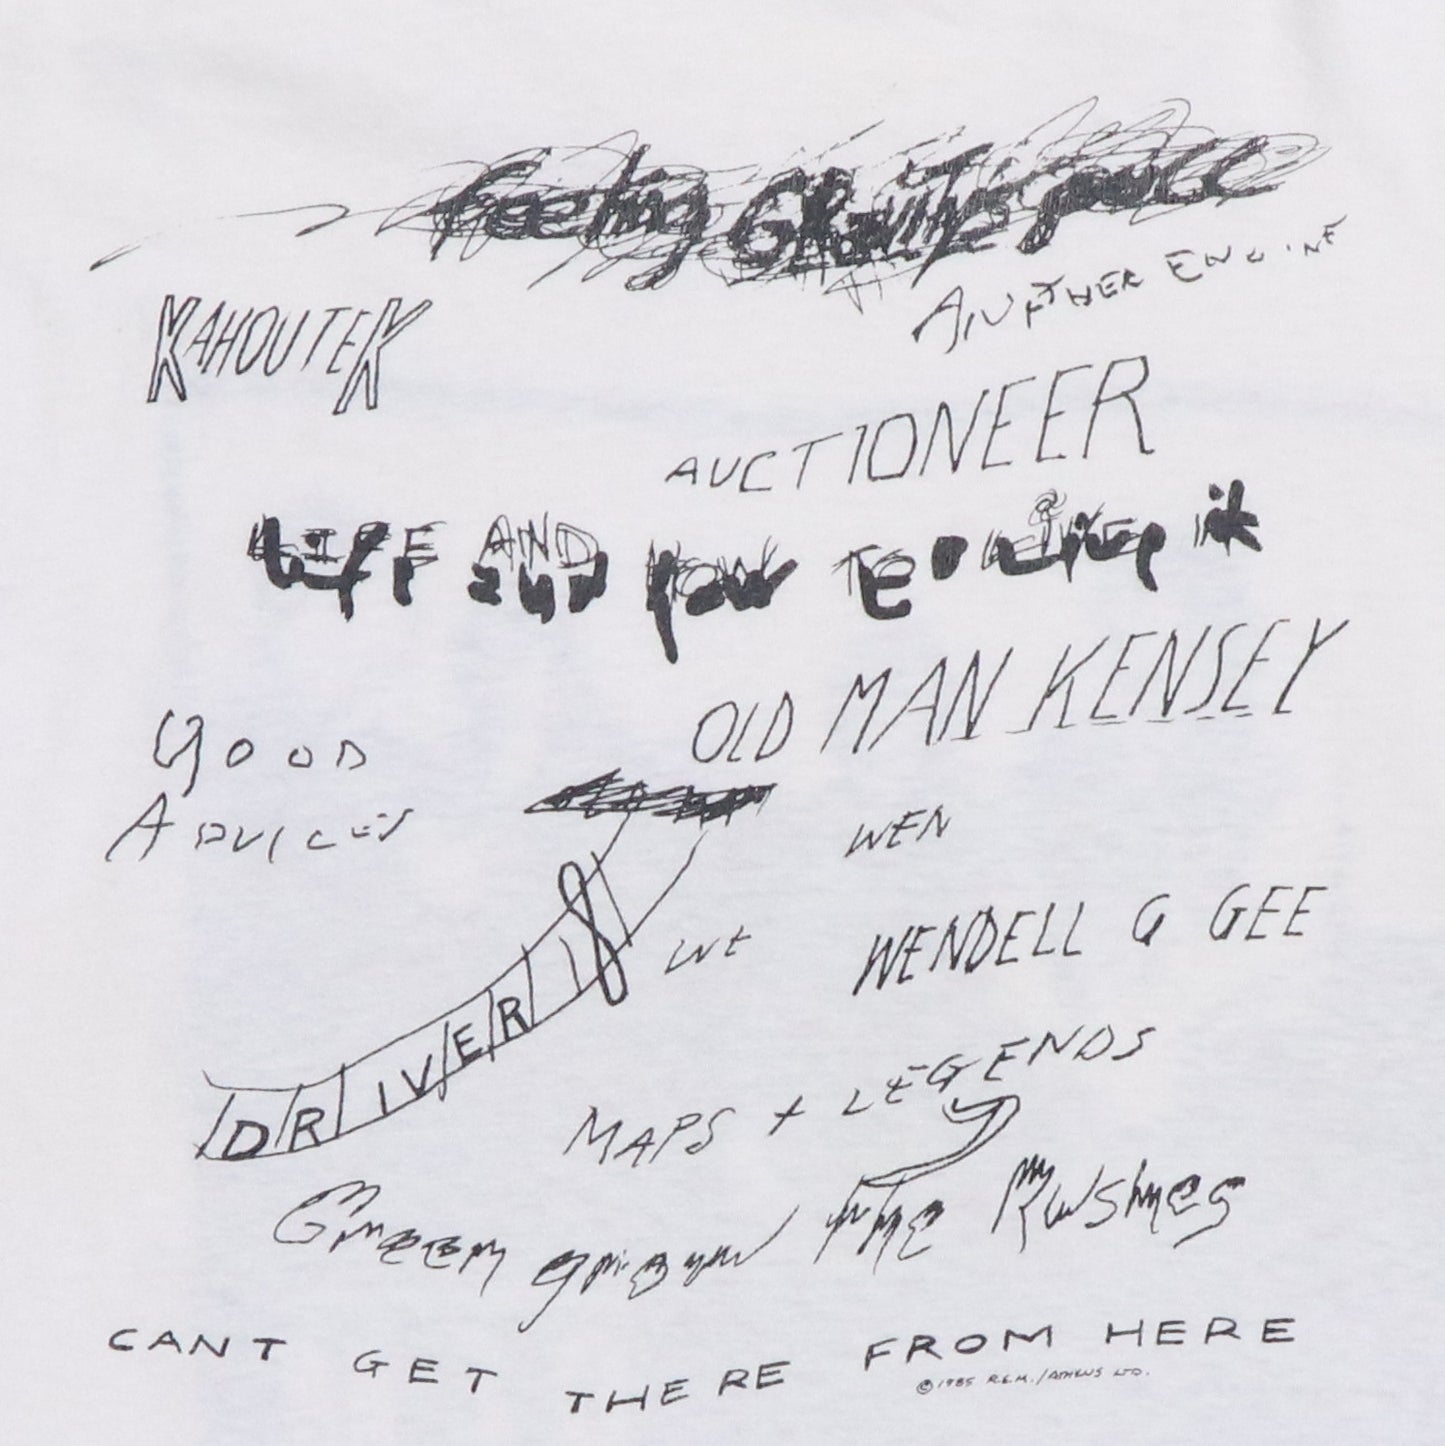 Feeling Gravitys pull
ANOTHER ENGINE
KAHOUTEK
AUCTIONEER
LIFE AND HOW TO LIVE it
OLD MAN KENSEY
GOOD
ADVICES
WEN
WENDELL G GEE
DRIVER 8
WE
MAPS + LEGENDS
Green grow The Rushes
CANT GET THERE FROM HERE
©1985 R.E.M./ATHENS LTD.